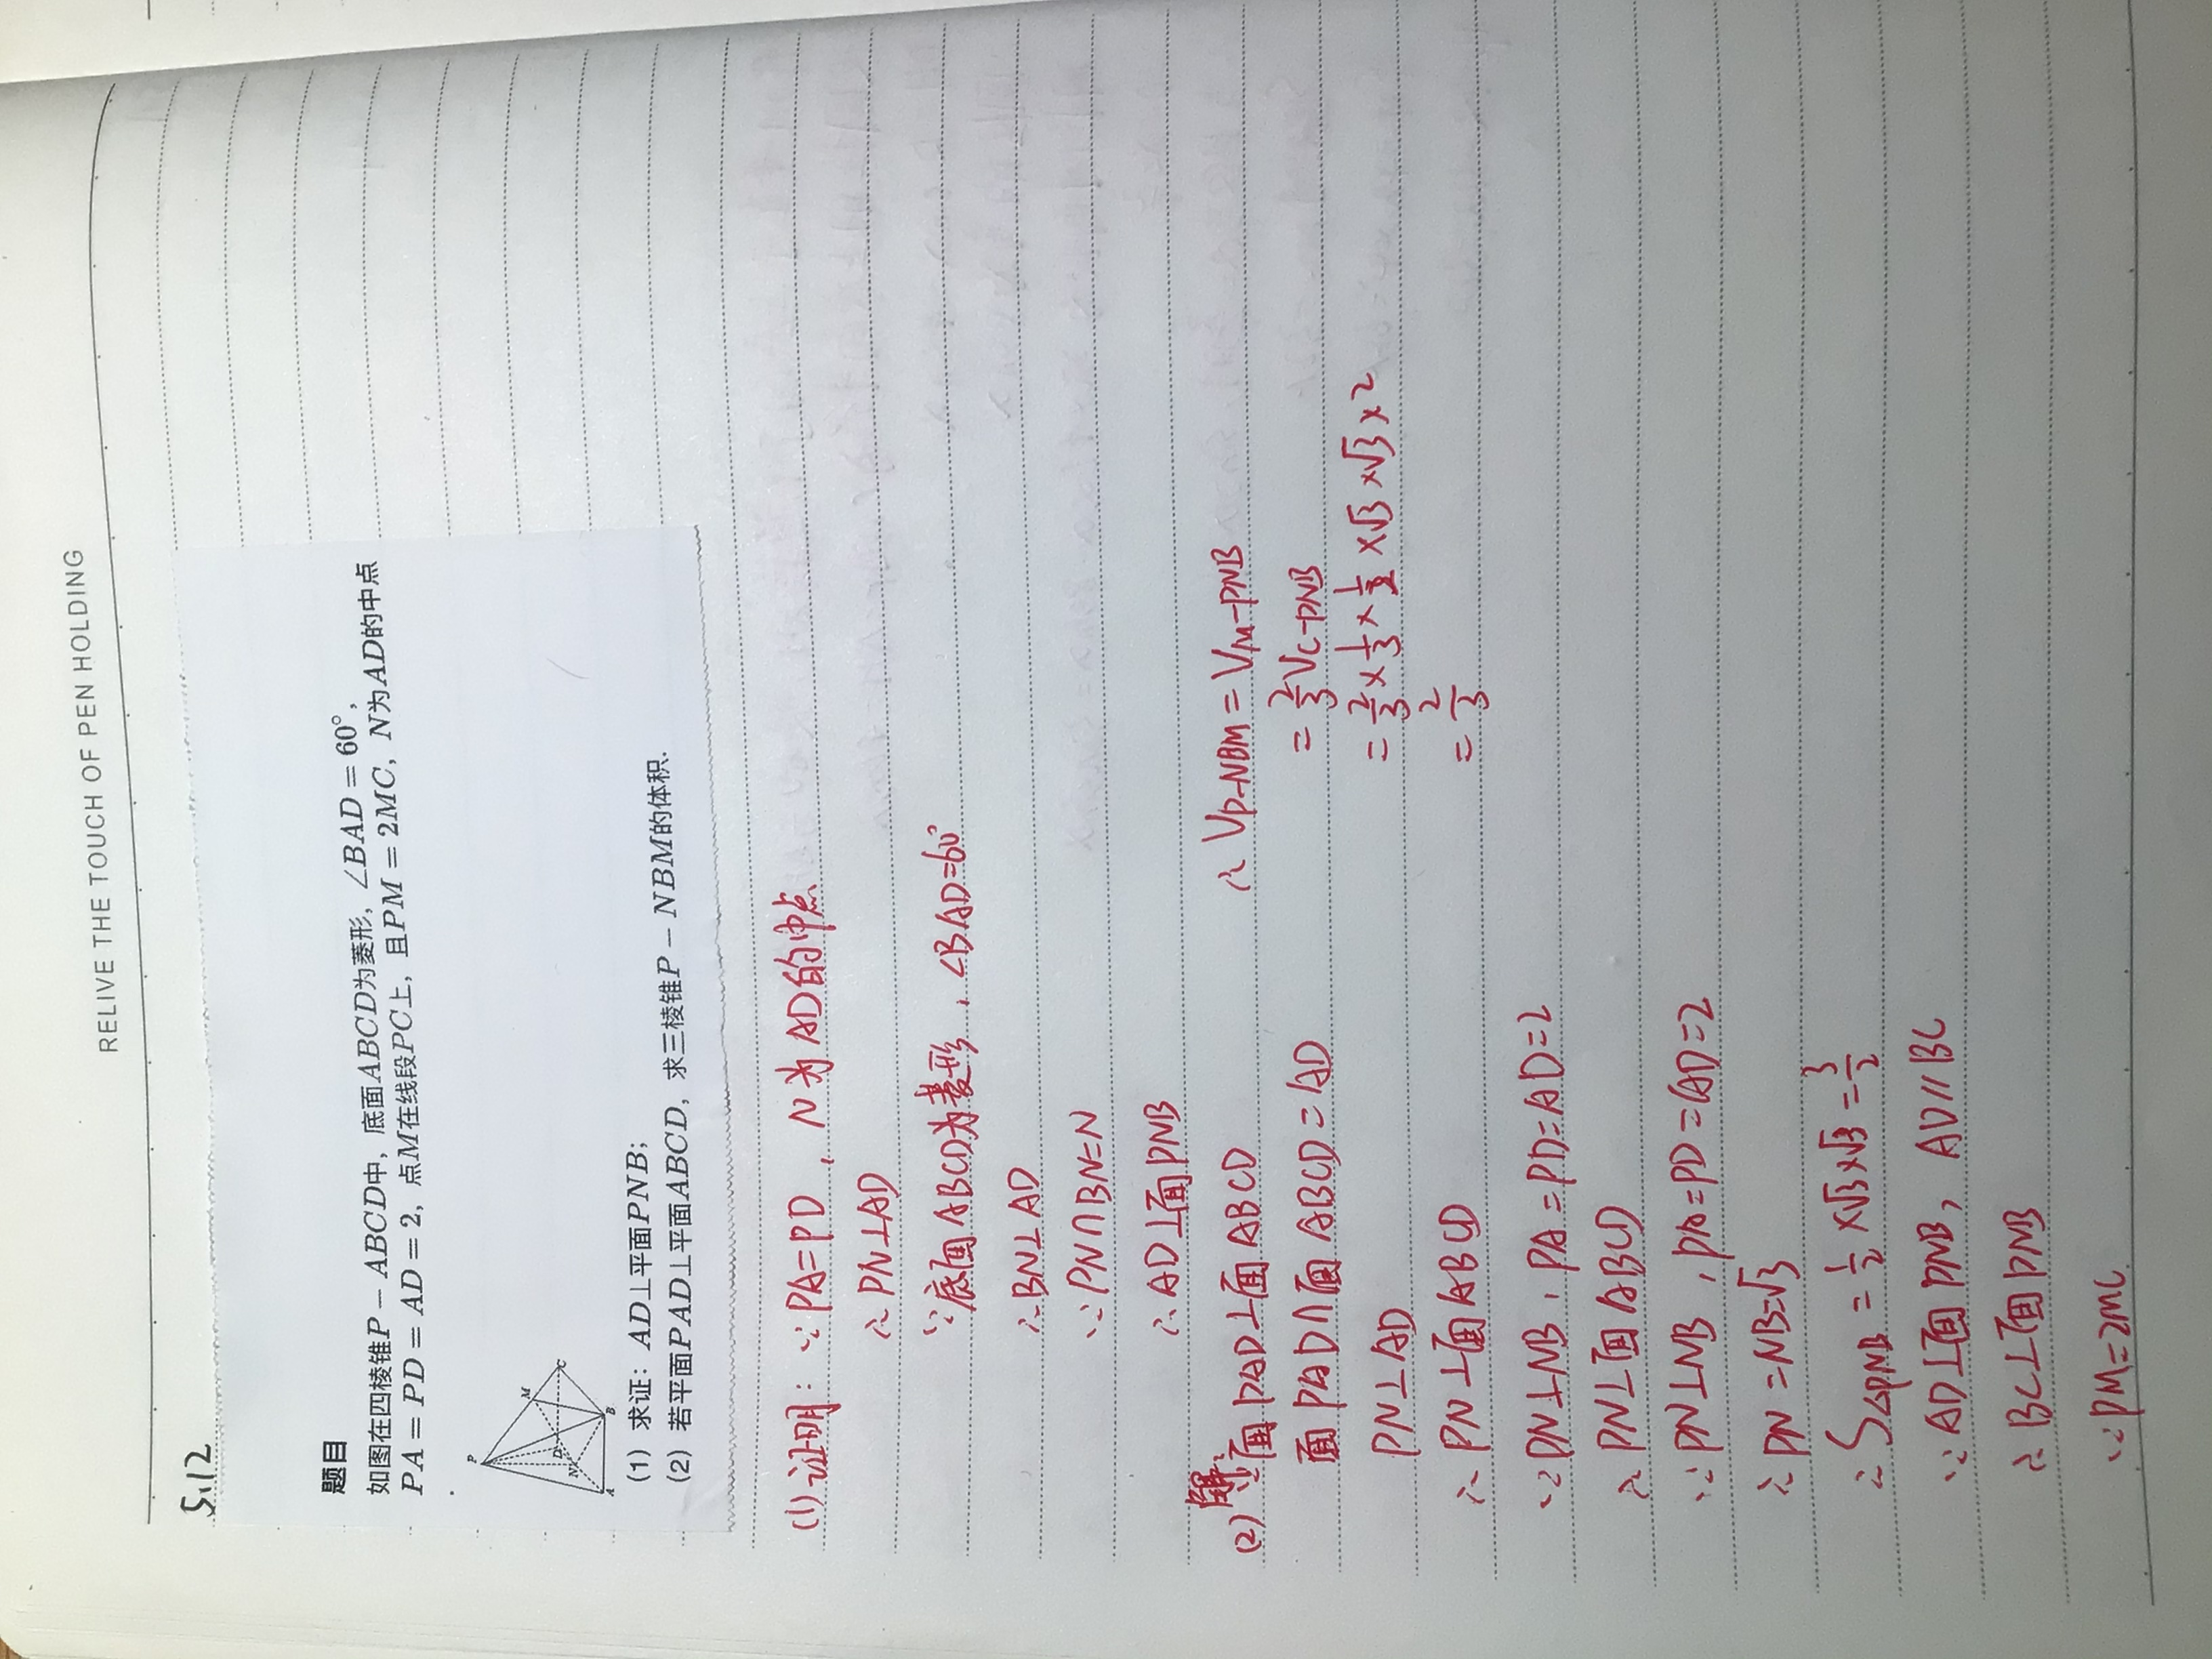 RELIVE THE TOUCH OF PEN HOLDING
5.12
题目
如图在四棱锥P − ABCD中，底面ABCD为菱形，∠BAD = 60°，
PA = PD = AD = 2，点M在线段PC上，且PM = 2MC，N为AD的中点
.
P
M
D
C
N
A
B
（1）求证：AD⊥平面PNB；
（2）若平面PAD⊥平面ABCD，求三棱锥P − NBM的体积.
(1) 证明：∵ PA=PD ，N为AD的中点
∴ PN⊥AD
∵底面ABCD为菱形，∠BAD=60°
∴BN⊥AD
∵ PN∩BN=N
∴ AD⊥面PNB
解：
(2) ∵面PAD⊥面ABCD
面PAD∩面ABCD=AD
PN⊥AD
∴ PN⊥面ABCD
∵ PN⊥NB，PA=PD=AD=2
∴ PN⊥面ABCD
∵ PN⊥NB ，PA=PD=AD=2
∴ PN=NB=√3
∴ S△PNB = 1/2 ×√3×√3 = 3/2
∵ AD⊥面PNB，AD//BC
∴ BC⊥面PNB
∵ PM=2MC
∴ VP-NBM = VM-PNB
= 2/3 VC-PNB
= 2/3 × 1/3 × 1/2 ×√3 ×√3 ×2
= 2/3